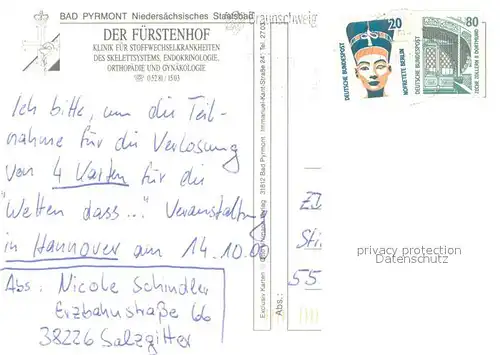 BAD PYRMONT Niedersächsisches Staatsbad
DER FÜRSTENHOF
KLINIK FÜR STOFFWECHSELKRANKHEITEN
DES SKELETTSYSTEMS, ENDOKRINOLOGIE,
ORTHOPÄDIE UND GYNÄKOLOGIE
☎ 0 52 81 / 15 03
Ich bitte, um die Teil-
nahme für die Verlosung
von 4 Karten für die
"Wetten dass..." Veranstaltung
in Hannover am 14.10.00
Abs: Nicole Schindler
Erzbahnstraße 66
38226 Salzgitter
Exclusiv Karten Verlag 31812 Bad Pyrmont Immanuel-Kant-Straße 24 Tel. 27 03
Abs.:
Braunschweig
20
DEUTSCHE BUNDESPOST
NOFRETETE BERLIN
80
DEUTSCHE BUNDESPOST
ZECHE ZOLLERN II DORTMUND
55
privacy protection
Datenschutz